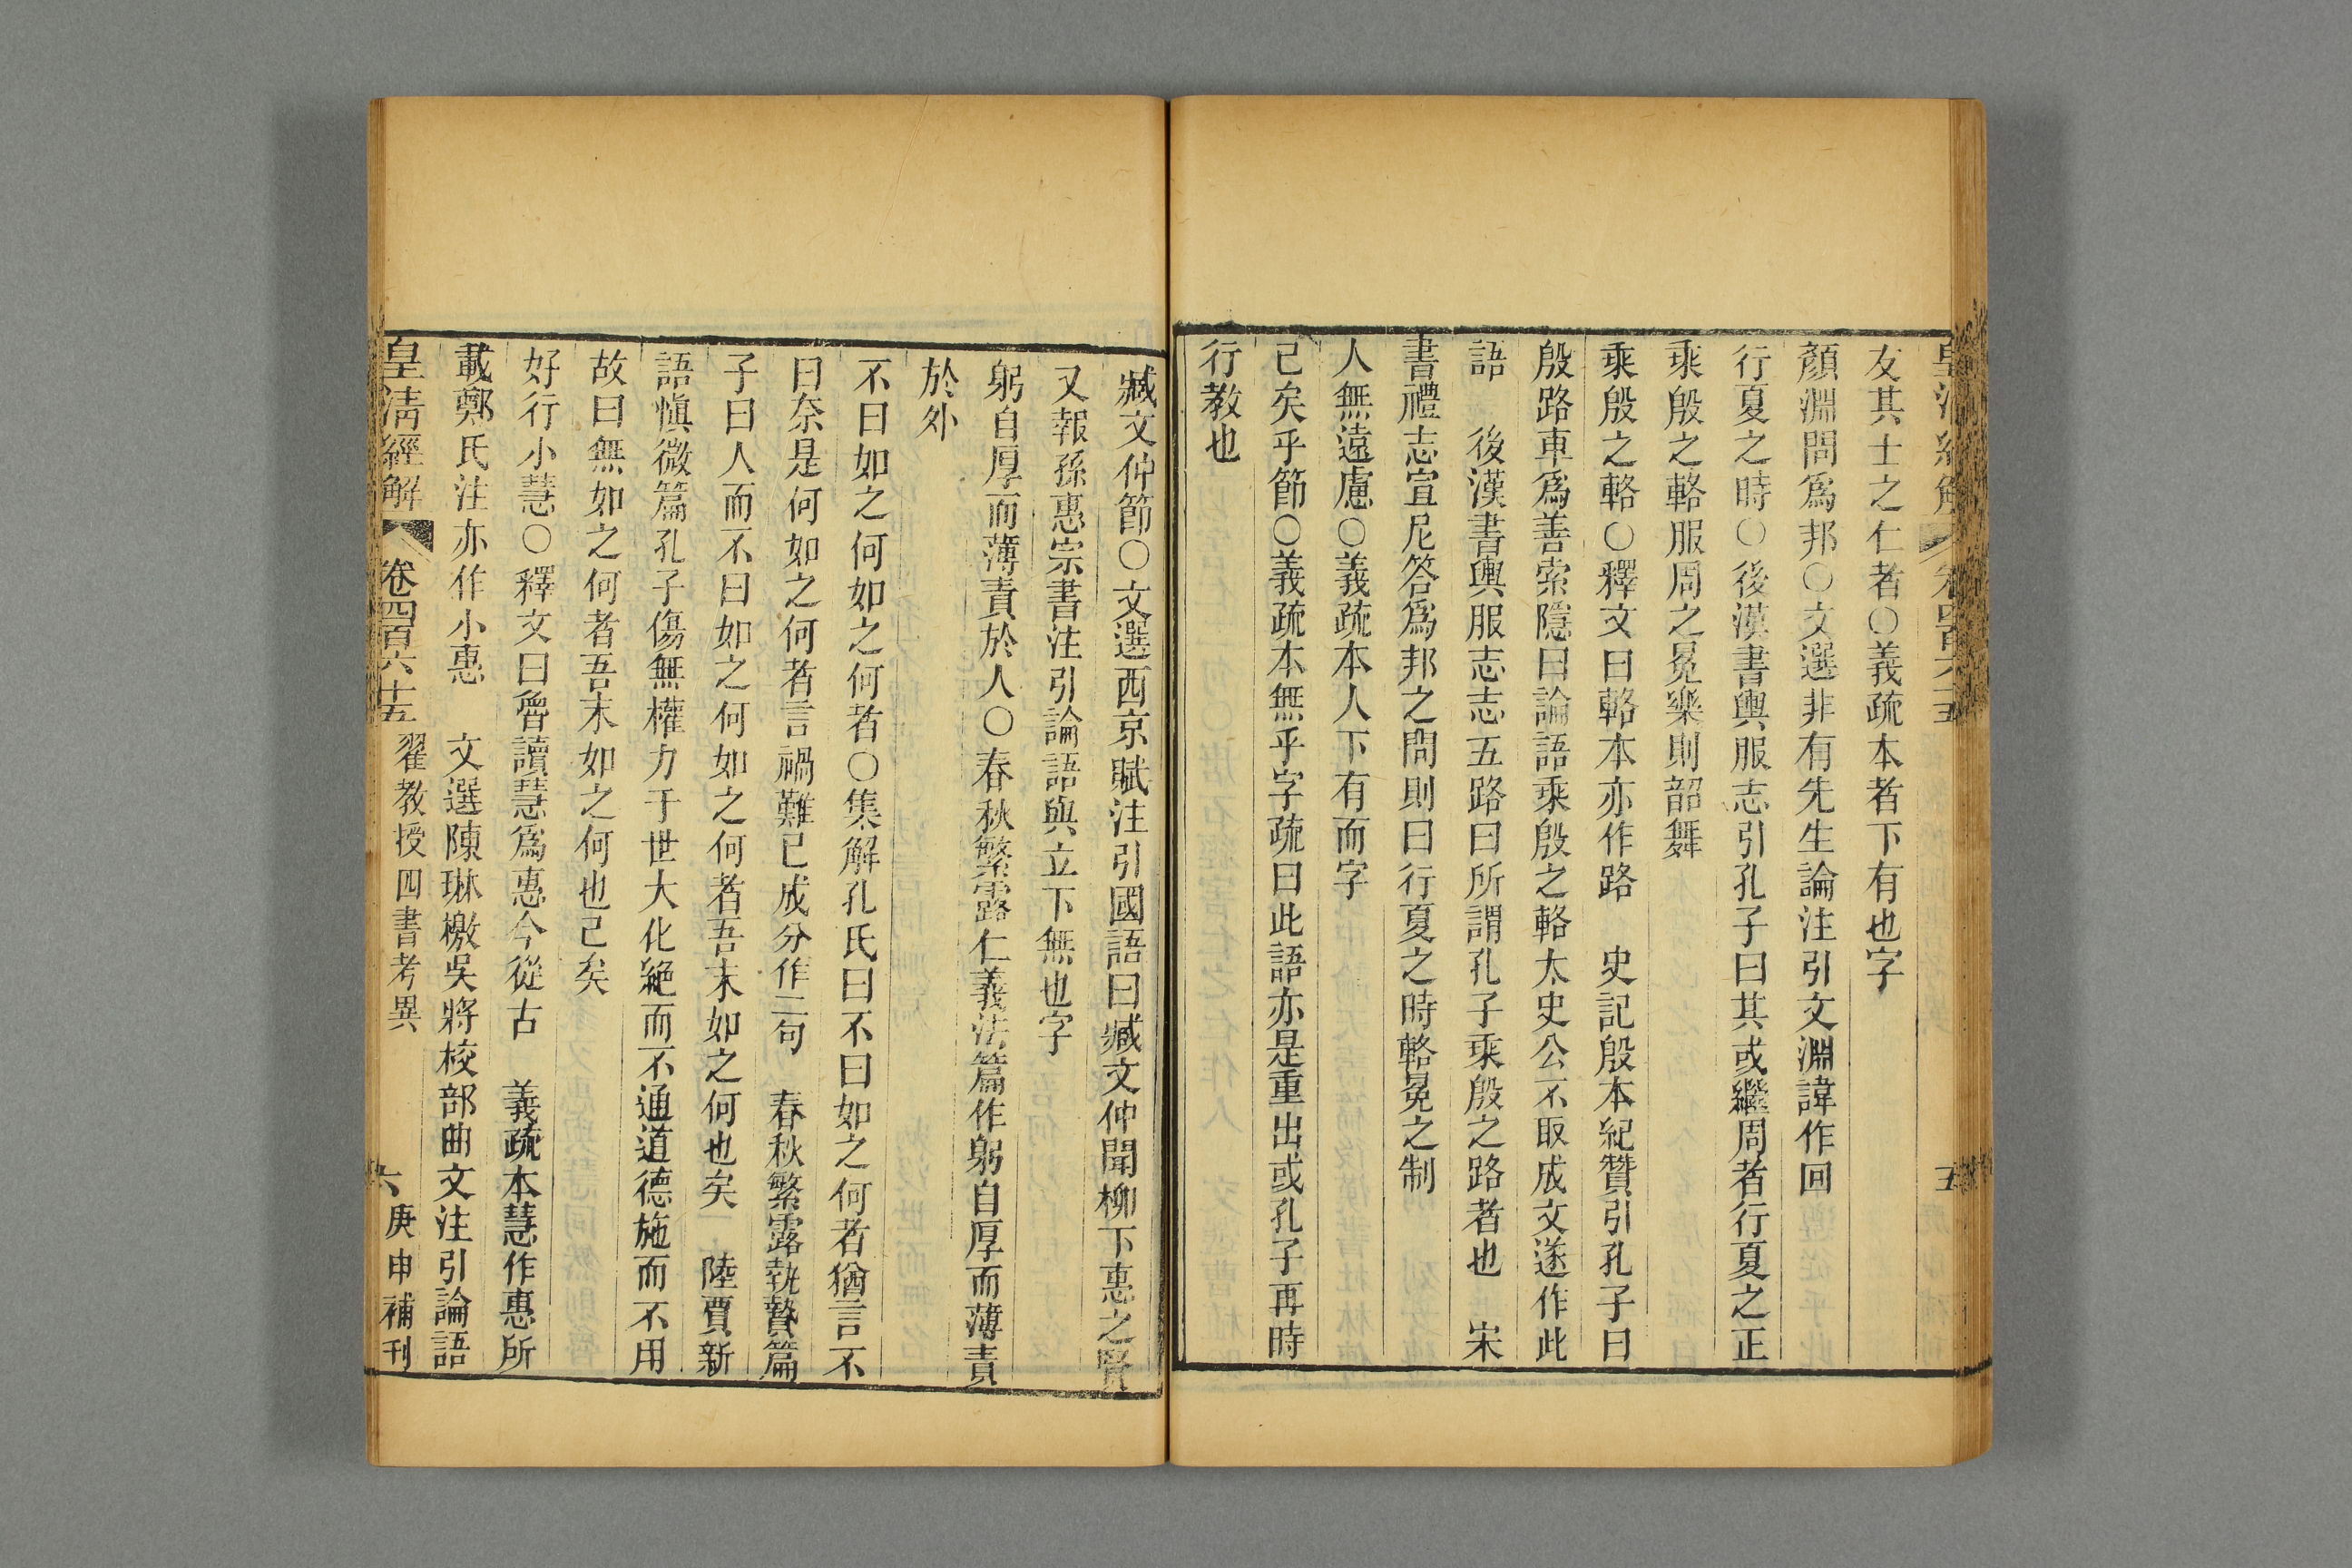 友其士之仁者〇義疏本者下有也字
顏淵問爲邦〇文選非有先生論注引文淵諱作回
行夏之時〇後漢書輿服志引孔子曰其或繼周者行夏之正
乘殷之輅服周之冕樂則韶舞
乘殷之輅〇釋文曰輅本亦作路　史記殷本紀贊引孔子曰
殷路車爲善索隱曰論語乘殷之輅太史公不取成文遂作此
語　後漢書輿服志志五路曰所謂孔子乘殷之路者也　宋
書禮志宣尼答爲邦之問則曰行夏之時輅冕之制
人無遠慮〇義疏本人下有而字
已矣乎節〇義疏本無乎字疏曰此語亦是重出或孔子再時
行教也
臧文仲節〇文選西京賦注引國語曰臧文仲聞柳下惠之賢
又報孫惠宗書注引論語與立下無也字
躬自厚而薄責於人〇春秋繁露仁義法篇作躬自厚而薄責
於外
不曰如之何如之何者〇集解孔氏曰不曰如之何者猶言不
曰奈是何如之何者言禍難已成分作二句　春秋繁露執贄篇
子曰人而不曰如之何如之何者吾末如之何也矣　陸賈新
語愼微篇孔子傷無權力于世大化絶而不通道德施而不用
故曰無如之何者吾末如之何也已矣
好行小慧〇釋文曰魯讀慧爲惠今從古　義疏本慧作惠所
載鄭氏注亦作小惠　文選陳琳檄吳將校部曲文注引論語
皇清經解　卷四百六十五　翟教授四書考異　六　庚申補刊